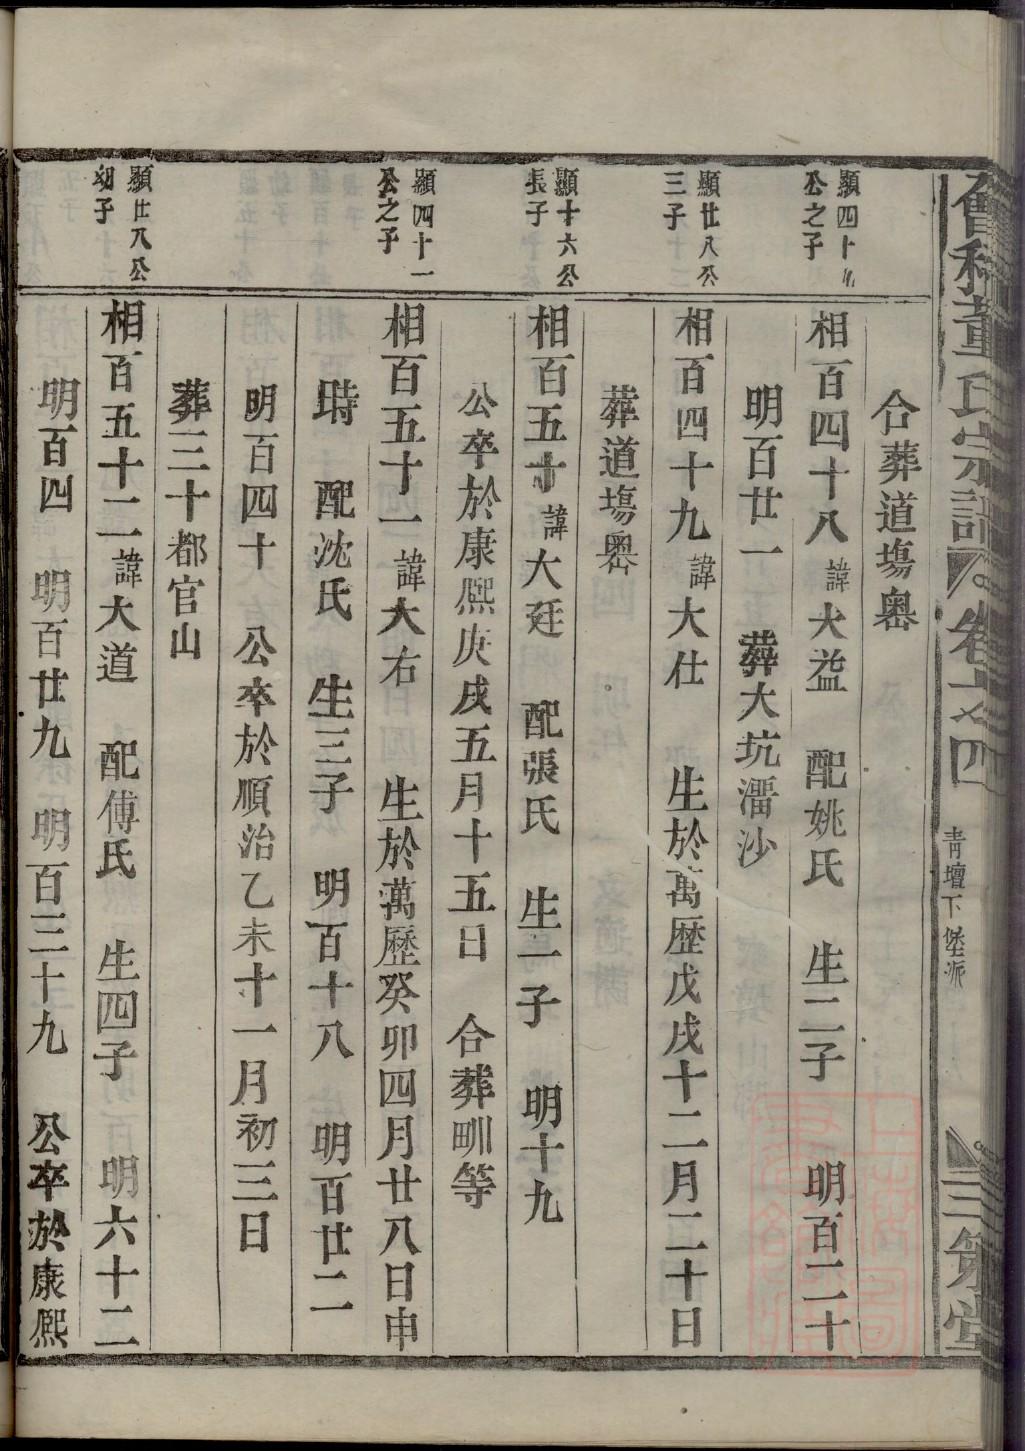 董氏宗譜
卷之四
青壇下堡派
三策堂
合葬道塲嶴
顯四十九
公之子
相百四十八 諱大益 配姚氏 生二子 明百二十
明百廿一 葬大坑湑沙
顯廿八公
三子
相百四十九 諱大仕 生於萬歷戊戌十二月二十日
葬道塲嶴
顯十六公
長子
相百五十 諱大廷 配張氏 生一子 明十九
公卒於康熙庚戌五月十五日 合葬畔等
顯四十一
公之子
相百五十一 諱大右 生於萬歷癸卯四月廿八日申
時 配沈氏 生三子 明百十八 明百廿二
明百四十 公卒於順治乙未十一月初三日
葬三十都官山
顯廿八公
幼子
相百五十二 諱大道 配傅氏 生四子 明六十二
明百四 明百廿九 明百三十九 公卒於康熙